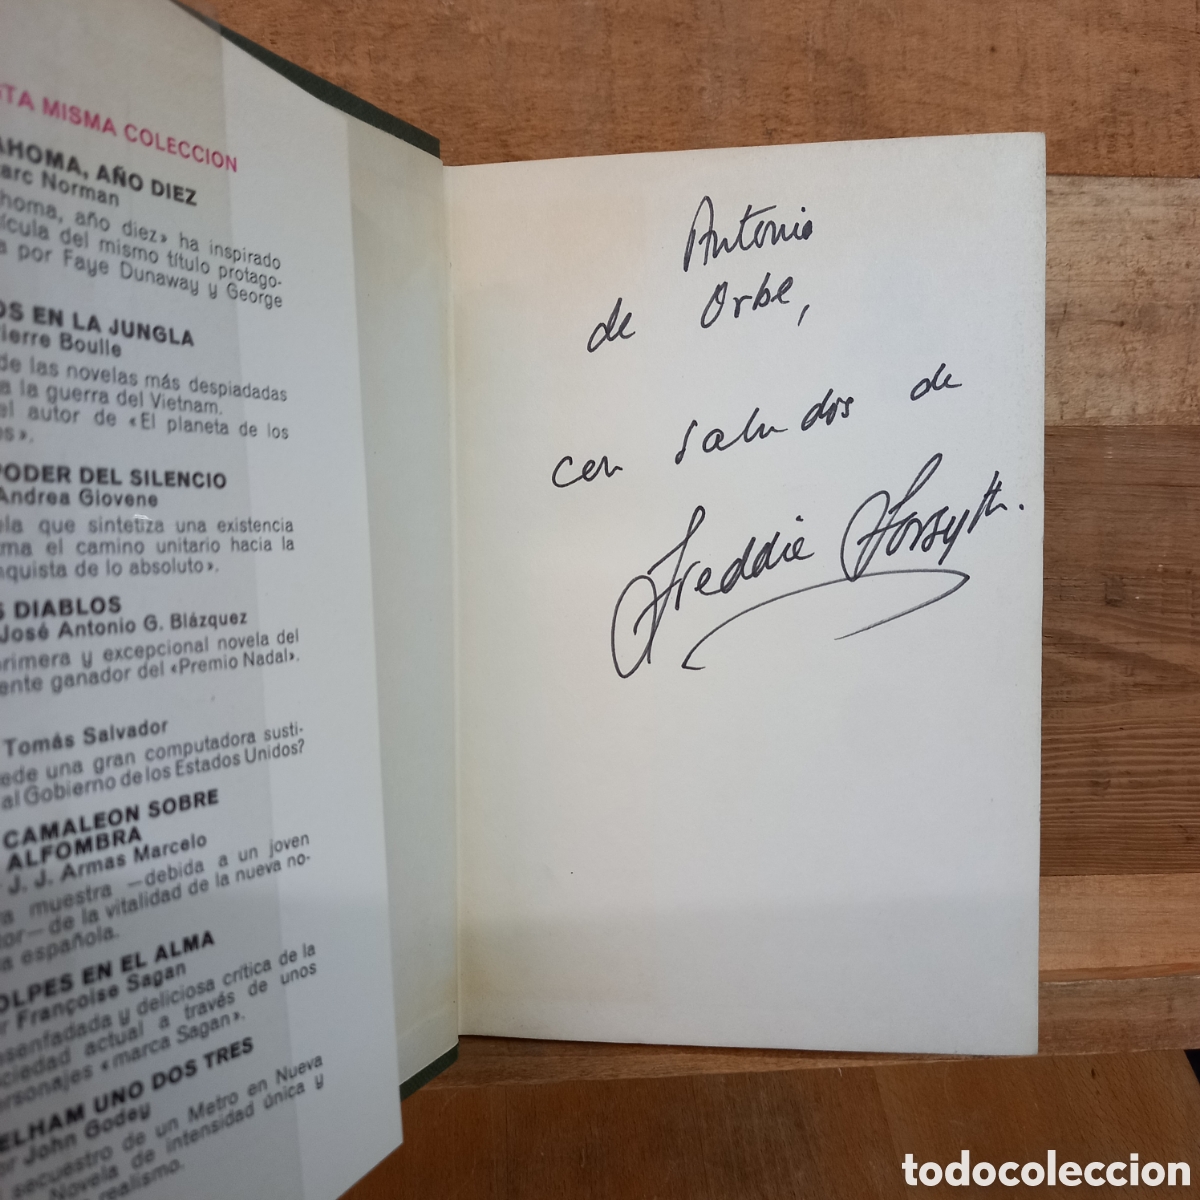 STA MISMA COLECCION
AHOMA, AÑO DIEZ
arc Norman
homa, año diez» ha inspirado
ícula del mismo título protago-
a por Faye Dunaway y George
OS EN LA JUNGLA
ierre Boulle
de las novelas más despiadadas
a la guerra del Vietnam.
el autor de «El planeta de los
os».
PODER DEL SILENCIO
Andrea Giovene
ela que sintetiza una existencia
ma el camino unitario hacia la
nquista de lo absoluto».
S DIABLOS
José Antonio G. Blázquez
primera y excepcional novela del
ente ganador del «Premio Nadal».
Tomás Salvador
ede una gran computadora susti-
al Gobierno de los Estados Unidos?
CAMALEON SOBRE
ALFOMBRA
J. J. Armas Marcelo
a muestra —debida a un joven
or— de la vitalidad de la nueva no-
a española.
OLPES EN EL ALMA
r Françoise Sagan
esenfadada y deliciosa crítica de la
ciedad actual a través de unos
ersonajes «marca Sagan».
ELHAM UNO DOS TRES
or John Godey
secuestro de un Metro en Nueva
Novela de intensidad única y
realismo.
Antonio
de Orbe,
con saludos de
Freddie Forsyth.
todocoleccion